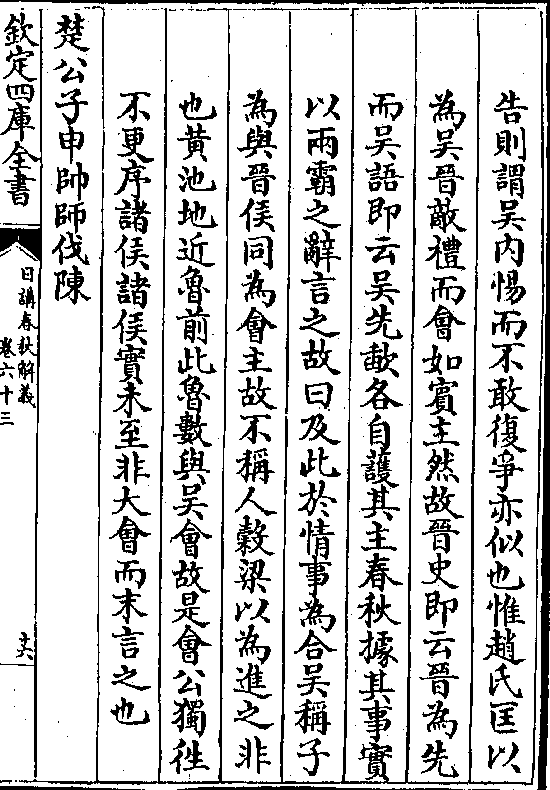 告則謂吳内惕而不敢復爭亦似也惟趙氏匡以
為吳晉敵禮而會如賓主然故晉史即云晉為先
而吳語即云吳先歃各自護其主春秋據其事實
以兩霸之辭言之故曰及此於情事為合吳稱子
為與晉侯同為會主故不稱人穀梁以為進之非
也黄池地近魯前此魯數與吳會故是會公獨往
不更序諸侯諸侯實未至非大會而末言之也
楚公子申帥師伐陳
欽定四庫全書
日講春秋解義
卷六十三
十六